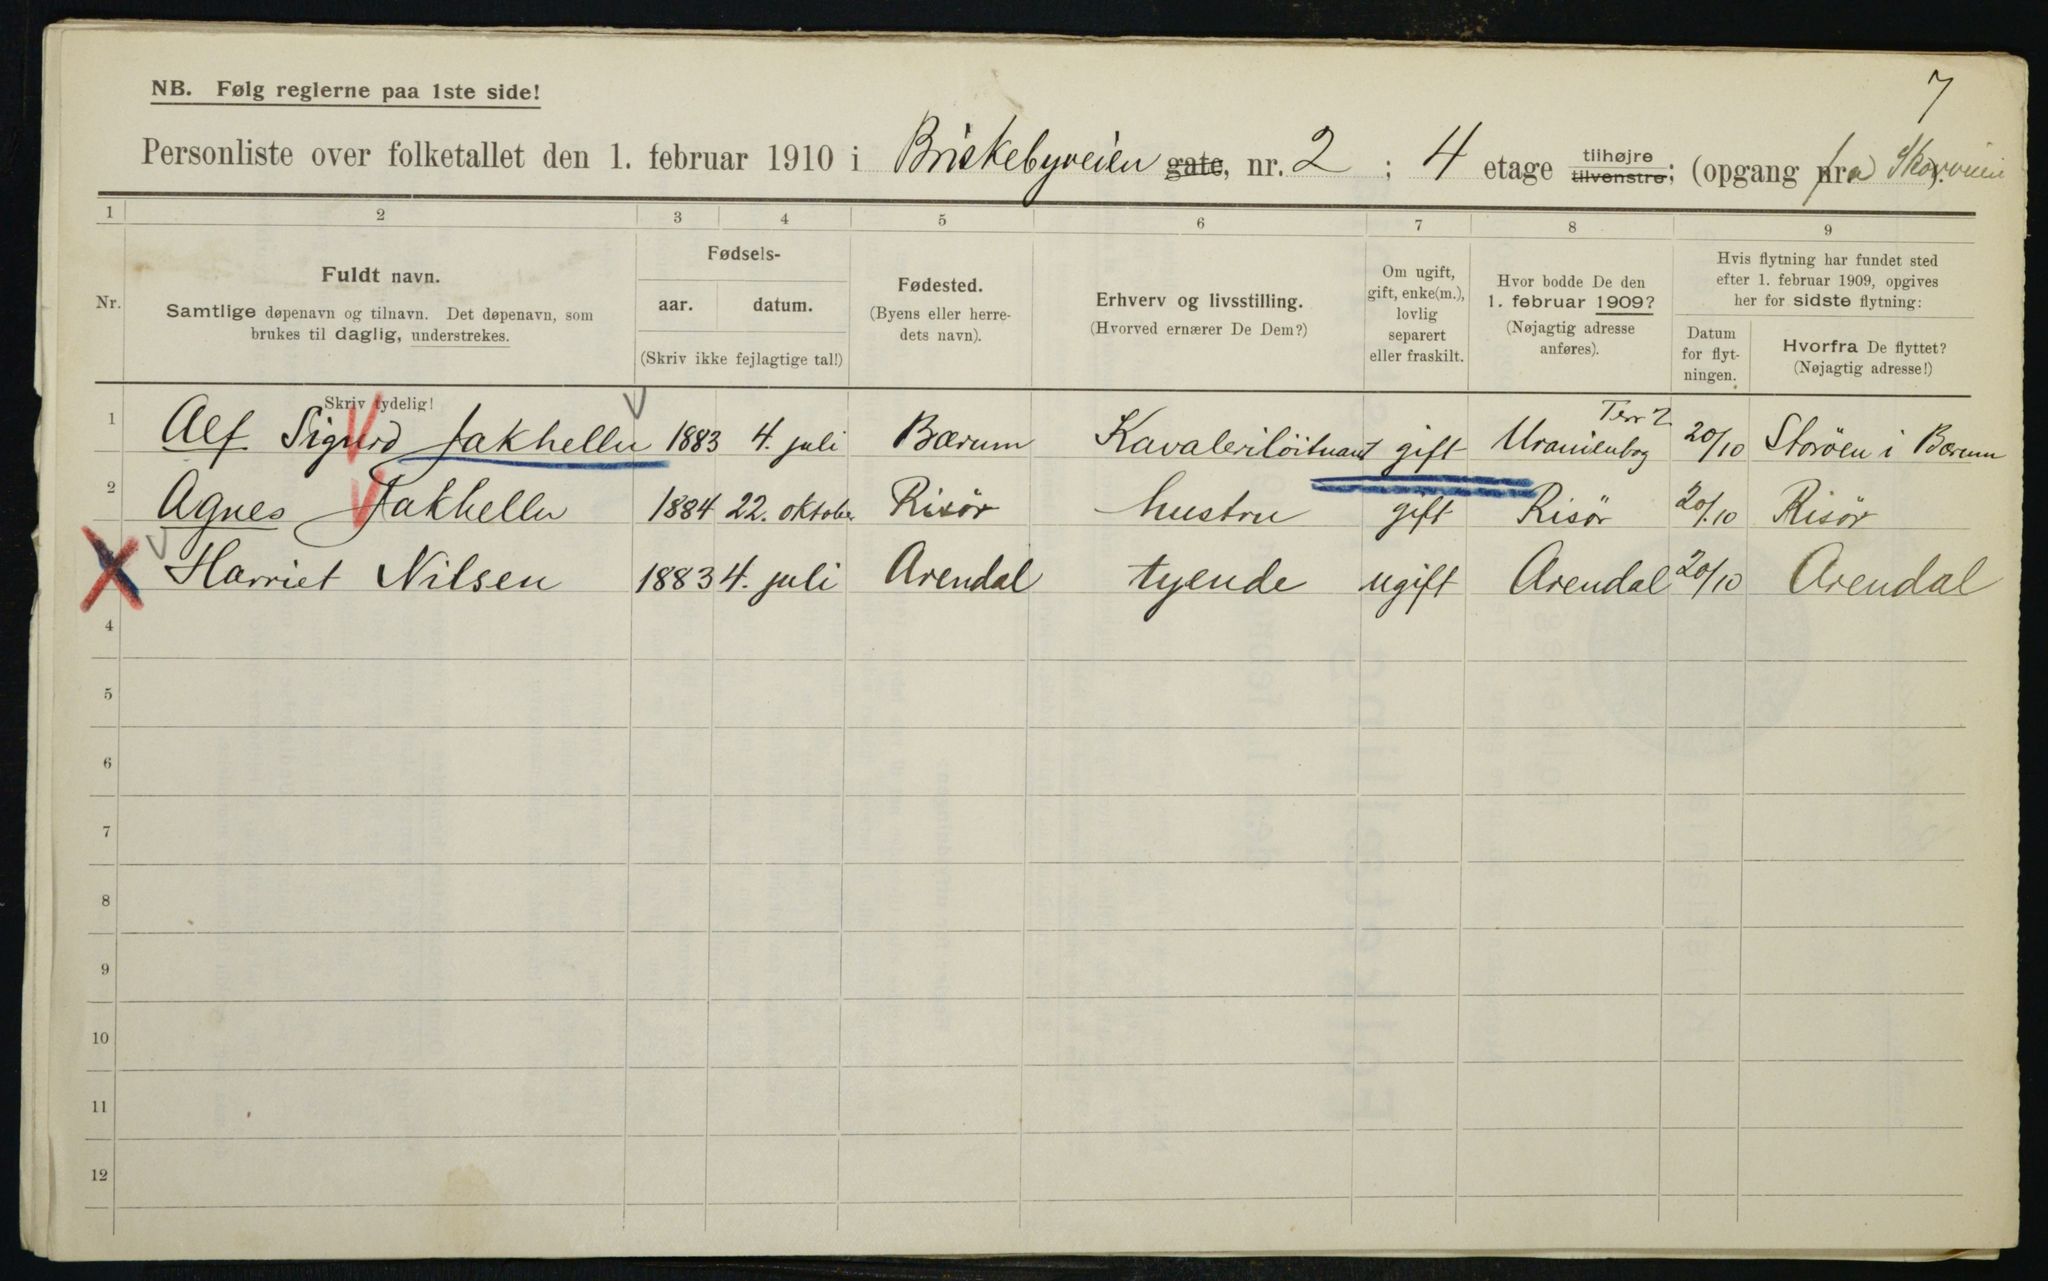 7
NB. Følg reglerne paa 1ste side!
Personliste over folketallet den 1. februar 1910 i Briskebyveien gate, nr. 2 ; 4 etage tilhøjre tilvenstre; (opgang nr. fra Skovveien).
1 2 3 4 5 6 7 8 9
Nr.
Fuldt navn.
Samtlige døpenavn og tilnavn. Det døpenavn, som
brukes til daglig, understrekes.
Skriv tydelig!
Fødsels-
aar. datum.
(Skriv ikke fejlagtige tal!)
Fødested.
(Byens eller herre-
dets navn).
Erhverv og livsstilling.
(Hvorved ernærer De Dem?)
Om ugift,
gift, enke(m.),
lovlig
separert
eller fraskilt.
Hvor bodde De den
1. februar 1909?
(Nøjagtig adresse
anføres).
Hvis flytning har fundet sted
efter 1. februar 1909, opgives
her for sidste flytning:
Datum
for flyt-
ningen.
Hvorfra De flyttet?
(Nøjagtig adresse!)
1 Alf Sigurd Jakhelln 1883 4. juli Bærum Kavaleriløitnant gift Uranienborg Terr 2 20/10 Storöen i Bærum
2 Agnes Jakhelln 1884 22. oktober Risör hustru gift Risör 20/10 Risör
Harriet Nilsen 1883 4. juli Arendal tyende ugift Arendal 20/10 Arendal
4
5
6
7
8
9
10
11
12